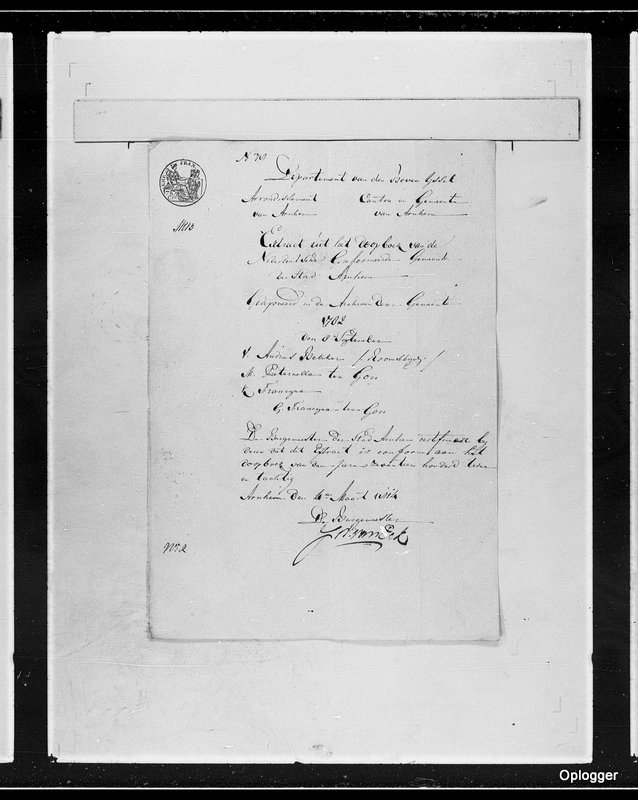 N 79
Departement van den Boven Yssel
Arrondissement Canton en Gemeente
van Arnhem van Arnhem
Extract uit het doopboek van de
Nederduitsche Gereformeerde Gemeente
der Stad Arnhem
Gedeponeerd in de Archieven dezer Gemeente
1782
den 8 September
V. Andries Bekker /: Roomschgez: /
M. Pieternella ter Gon
K. Francyna
G. Francyna ter Gon
De Burgemeester der Stad Arnhem certificeert by
dezen dat dit Extract is conform aan het
doopboek van den Jare zeventien honderd twee
en tachtig
Arnhem den 4de Maart 1814
De Burgemeester
No. 2
Oplogger